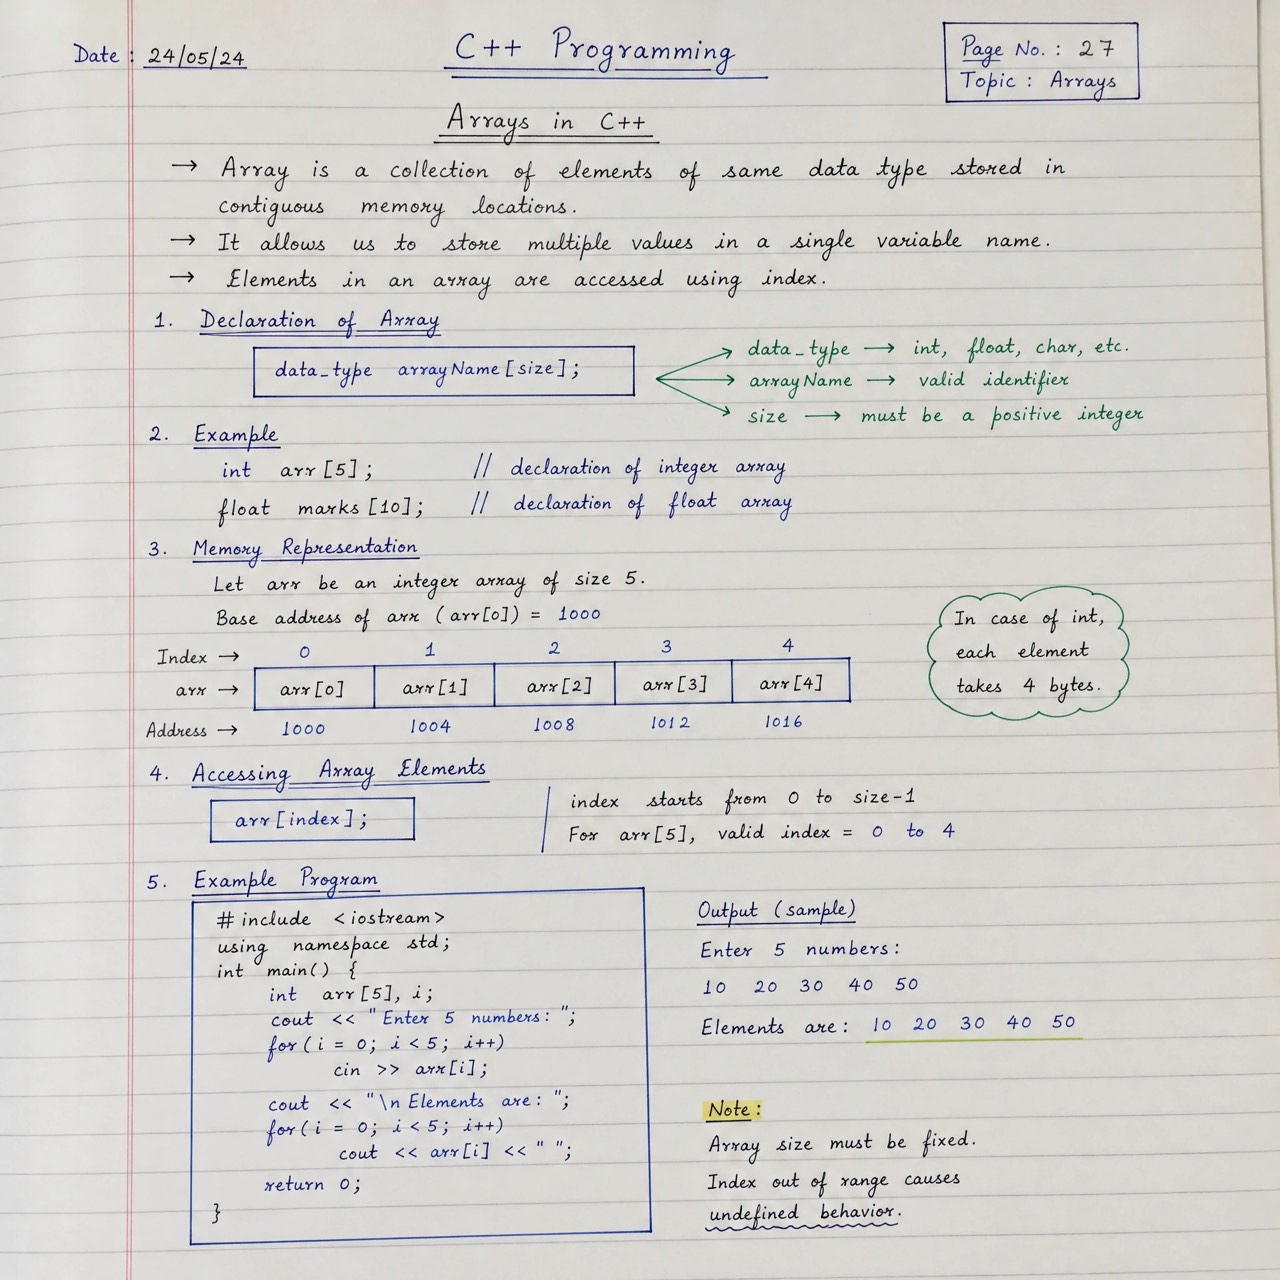 Date : 24/05/24
C++ Programming
Page No. : 27
Topic : Arrays
Arrays in C++
→ Array is a collection of elements of same data type stored in
contiguous memory locations.
→ It allows us to store multiple values in a single variable name.
→ Elements in an array are accessed using index.
1. Declaration of Array
data_type arrayName[size];
data_type → int, float, char, etc.
arrayName → valid identifier
size → must be a positive integer
2. Example
int arr[5]; // declaration of integer array
float marks[10]; // declaration of float array
3. Memory Representation
Let arr be an integer array of size 5.
Base address of arr (arr[0]) = 1000
Index → 0 1 2 3 4
arr → arr[0] arr[1] arr[2] arr[3] arr[4]
Address → 1000 1004 1008 1012 1016
In case of int,
each element
takes 4 bytes.
4. Accessing Array Elements
arr[index];
index starts from 0 to size-1
For arr[5], valid index = 0 to 4
5. Example Program
# include <iostream>
using namespace std;
int main() {
int arr[5], i;
cout << "Enter 5 numbers: ";
for(i = 0; i < 5; i++)
cin >> arr[i];
cout << "\n Elements are: ";
for(i = 0; i < 5; i++)
cout << arr[i] << " ";
return 0;
}
Output (sample)
Enter 5 numbers:
10 20 30 40 50
Elements are: 10 20 30 40 50
Note:
Array size must be fixed.
Index out of range causes
undefined behavior.